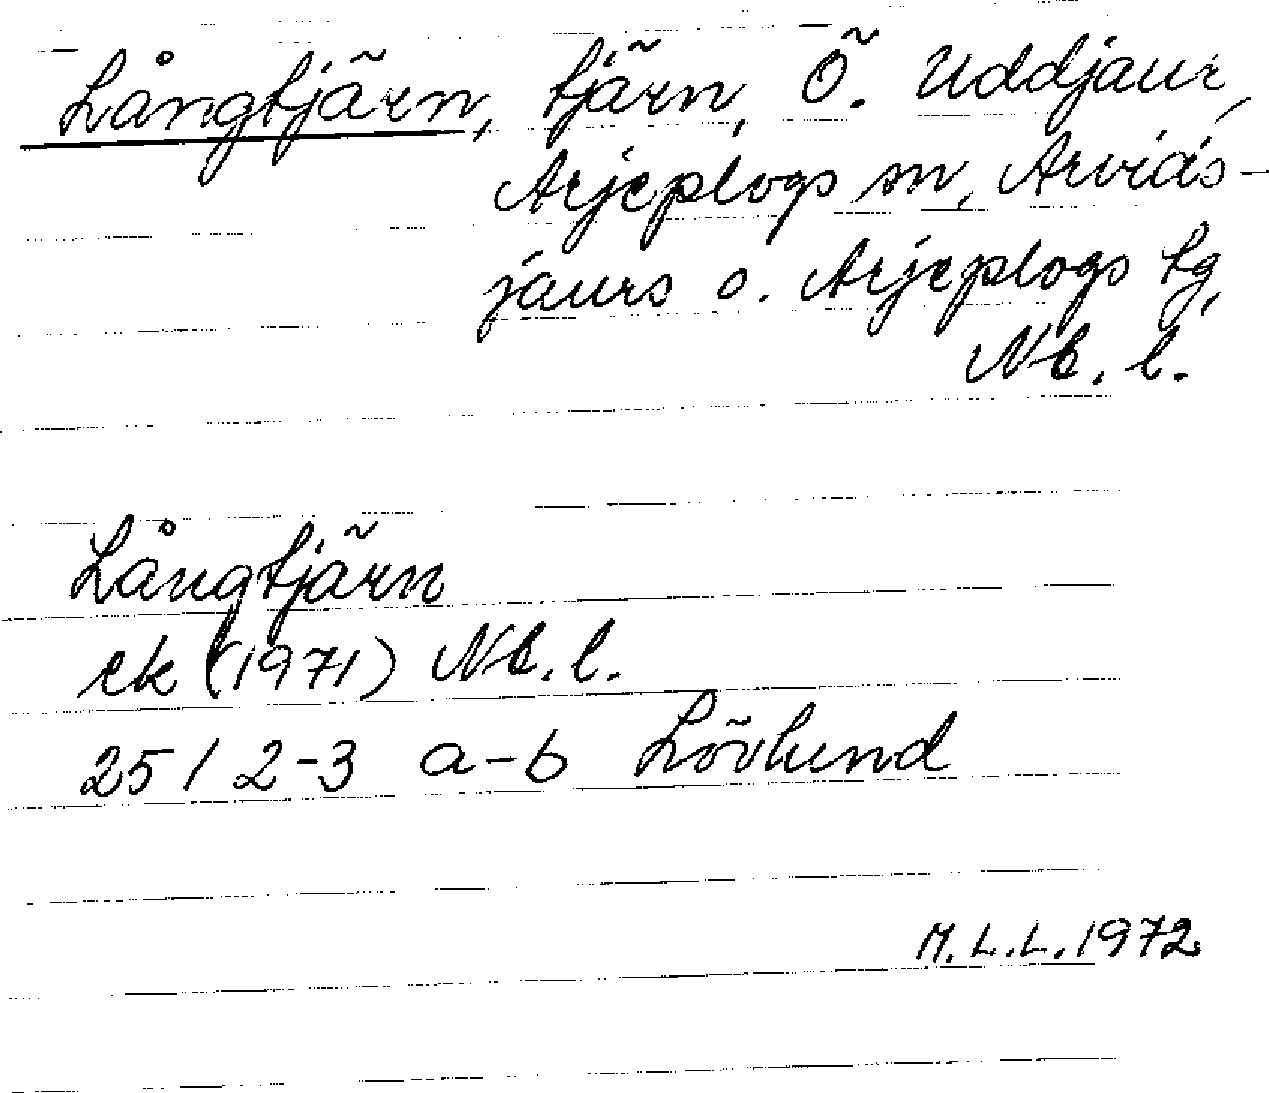 Långtjärn, tjärn, Ö. Uddjaur,
Arjeplogs sn, Arvids-
jaurs o. Arjeplogs tg,
Nb. l.
Långtjärn
ek (1971) Nb. l.
25 I 2-3 a-b Lövlund
M.L.L. 1972